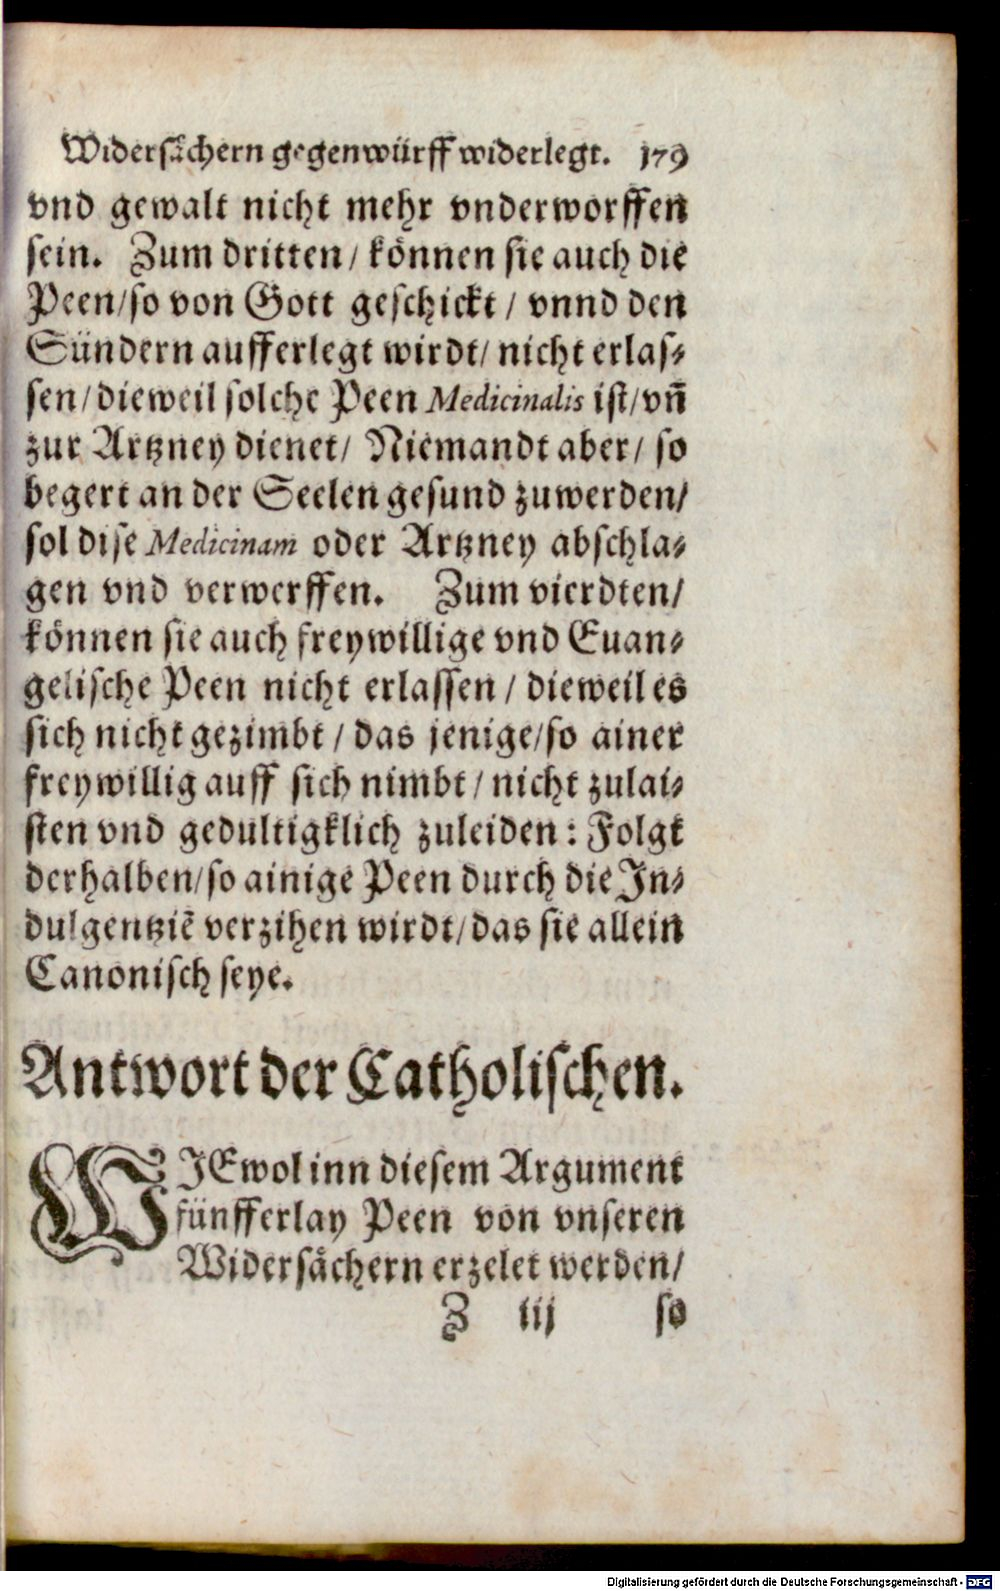 Widersächern gegenwürff widerlegt. 179
vnd gewalt nicht mehr vnderworffen
sein. Zum dritten/ können sie auch die
Peen/so von Gott geschickt / vnnd den
Sündern aufferlegt wirdt/ nicht erlas⸗
sen/dieweil solche Peen Medicinalis ist/vñ
zur Artzney dienet/ Niemandt aber/ so
begert an der Seelen gesund zuwerden/
sol dise Medicinam oder Artzney abschla⸗
gen vnd verwerffen. Zum vierdten/
können sie auch freywillige vnd Euan⸗
gelische Peen nicht erlassen / dieweil es
sich nicht gezimbt / das jenige/so ainer
freywillig auff sich nimbt / nicht zulai⸗
sten vnd gedultigklich zuleiden: Folgt
derhalben/so ainige Peen durch die In⸗
dulgentziẽ verzihen wirdt/das sie allein
Canonisch seye.
Antwort der Catholischen.
WIEwol inn diesem Argument
fünfferlay Peen von vnseren
Widersächern erzelet werden/
Z iij so
Digitalisierung gefördert durch die Deutsche Forschungsgemeinschaft - DFG